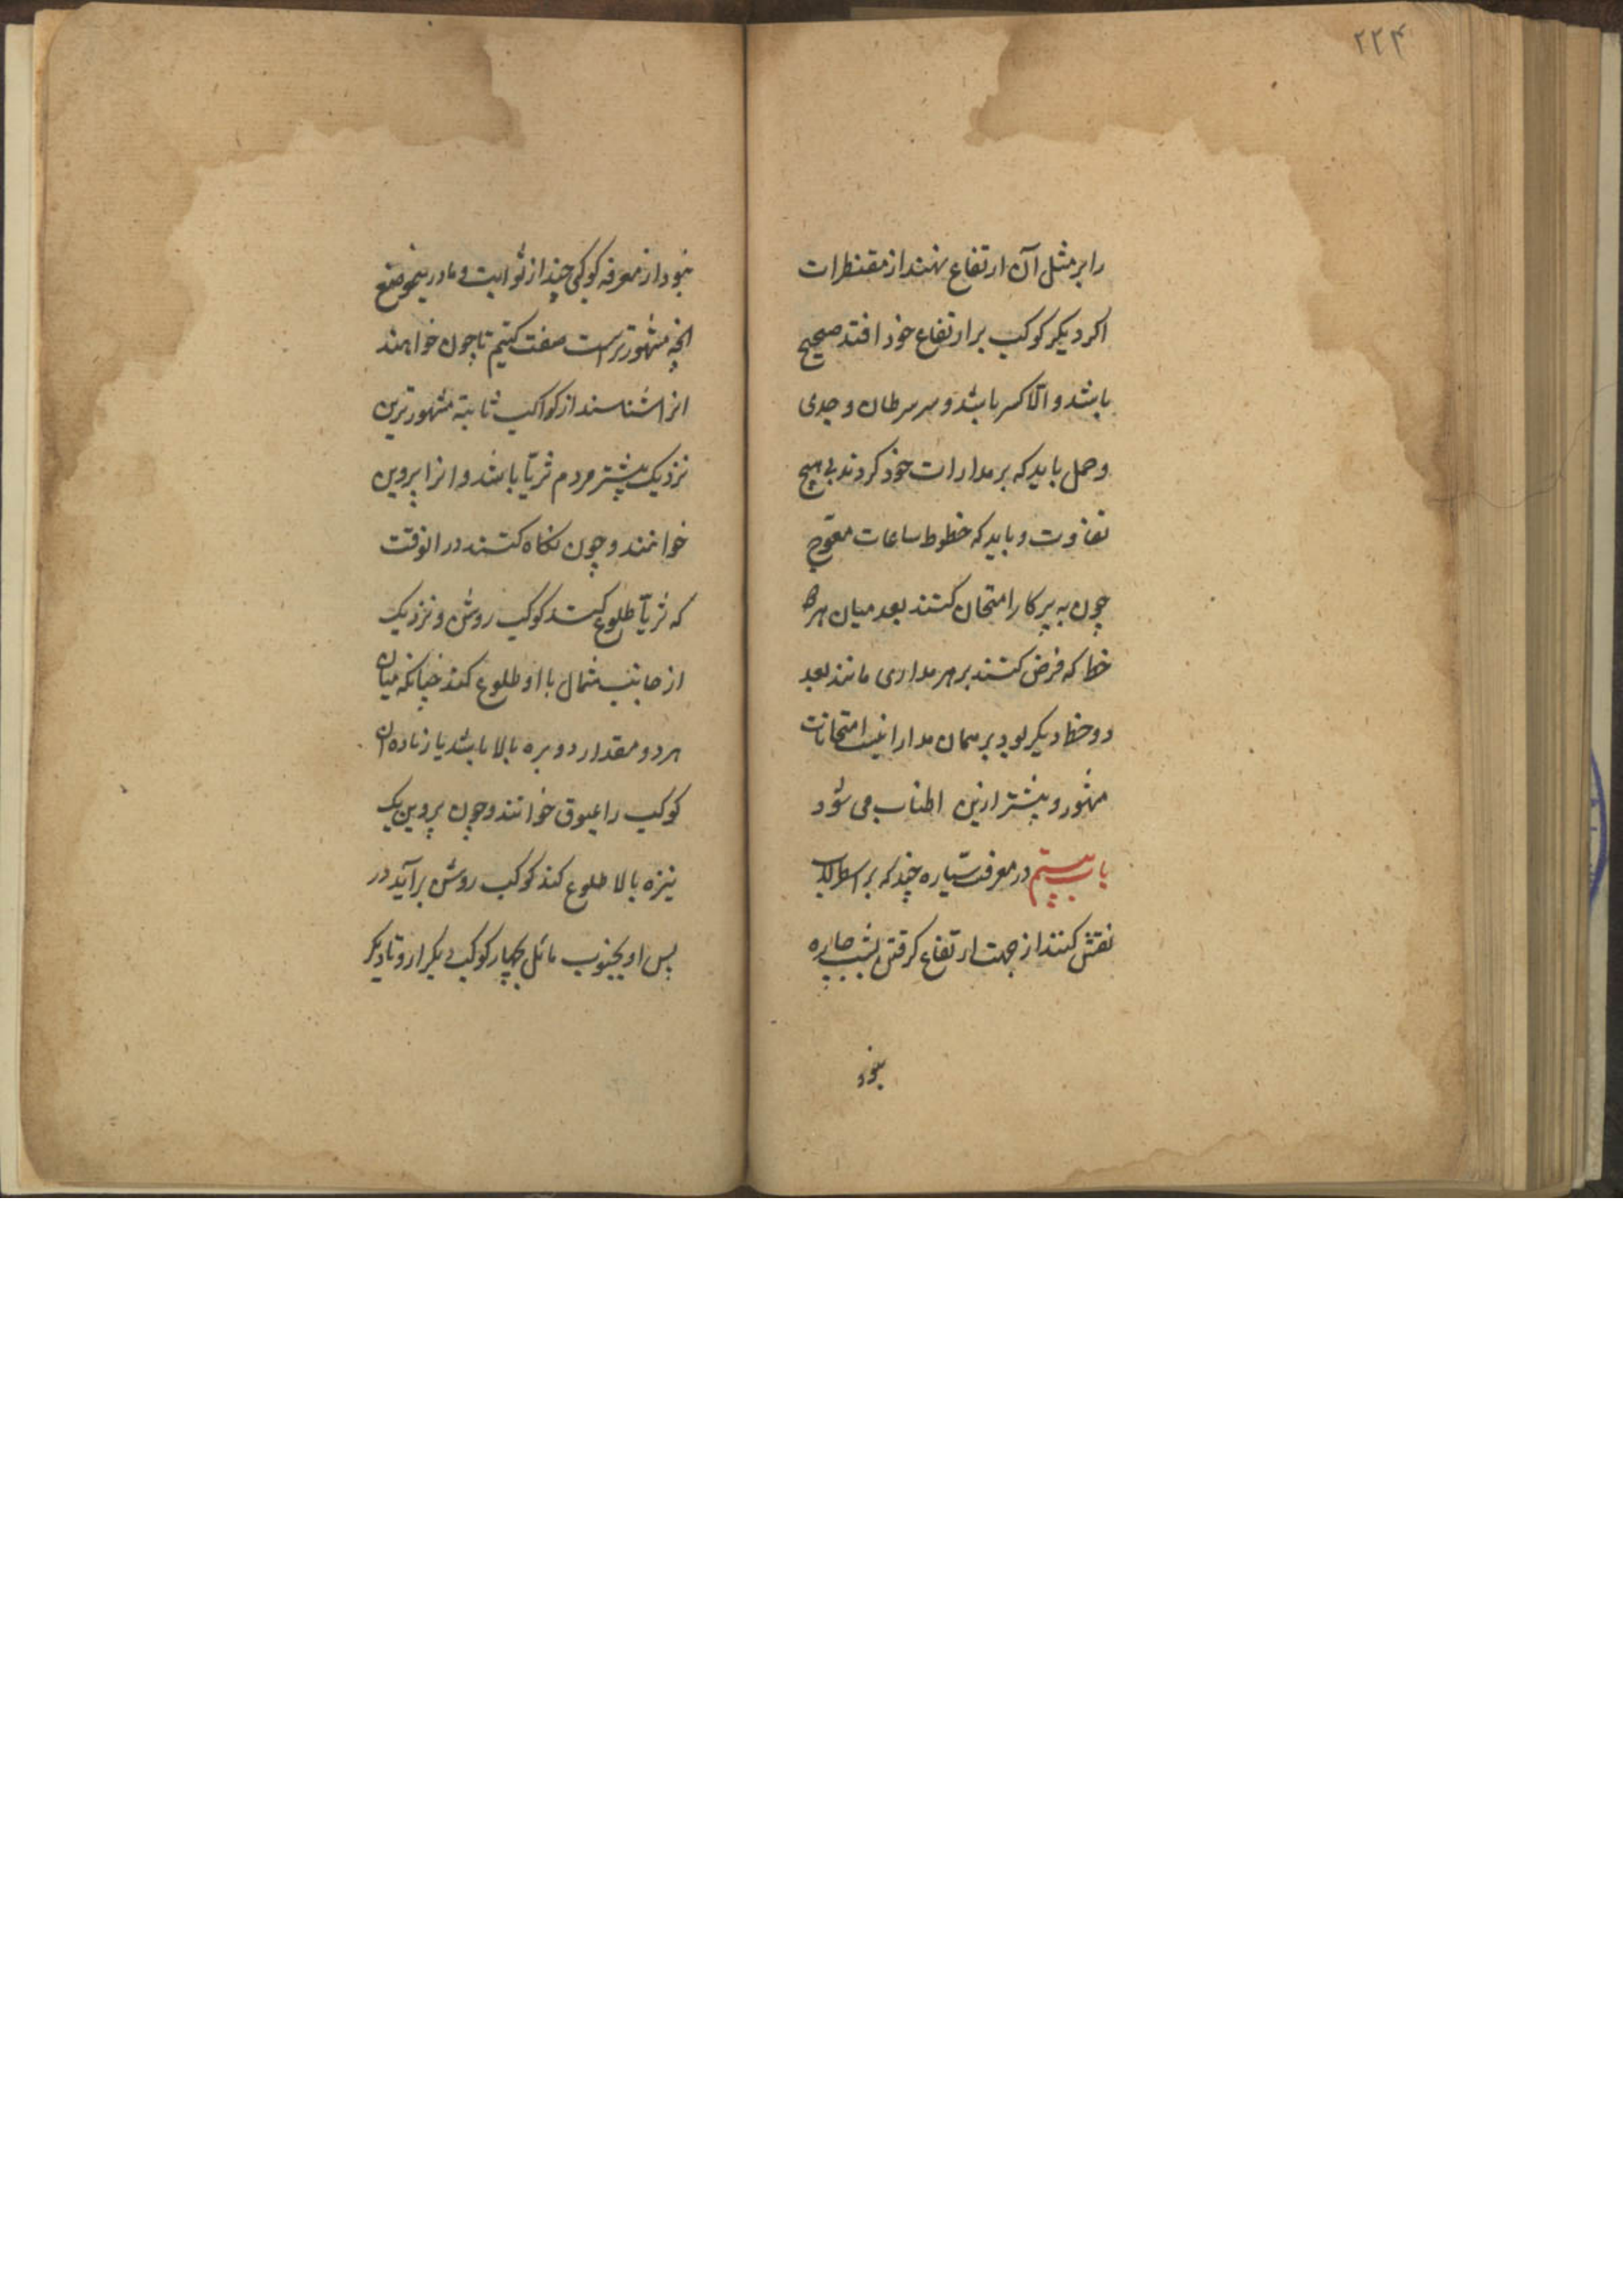 ۲۲۴
را بر مثل آن ارتفاع نهند از مقنطرات
اکر دیکر کوکب بر ارتفاع خود افتد صحیح
باشد و الا کسر باشد و سر سرطان و جدی
و حمل باید که بر مدارات خود کردند بی هیچ
تفاوت و باید که خطوط ساعات معوج
چون به پرکار امتحان کنند بعد میان هر
خط که فرض کنند بر هر مداری مانند بعد
دو خط دیکر بود بر همان مدار اینست امتحانات
مشهور و بیشتر ازین اطناب می شود
باب بیستم در معرفت ستاره چند که بر اسطرلاب
نقش کنند از جهت ارتفاع کرفتن بشب چاره
نبود
نبود از معرفه کوکبی چند از ثوابت و ما درینموضع
انچه مشهورترست صفت کنیم تا چون خواهند
انرا شناسند از کواکب ثابته مشهورترین
نزدیک بیشتر مردم ثریا باشد و انرا پروین
خوانند و چون نکاه کنند در انوقت
که ثریا طلوع کند کوکب روشن و نزدیک
از جانب شمال با او طلوع کند چنانکه میان
هر دو مقدار دو نیزه بالا باشد یا زیاده ان
کوکب را عیوق خوانند و چون پروین یک
نیزه بالا طلوع کند کوکب روشن برآید در
پس او بجنوب مائل بچهار کوکب دیکر ازو تا دیکر